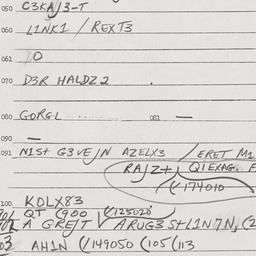 050 C3KAJ3-T
060 L1NK1 / REXT3
061 10
070 D3R HALDZ2 .
080 GORGL 081 —
090 —
091 N1St G3VEJN AZELX3 / ERET M1
RAJZ+ Q1EXAG.
(174010
100 KOLX83
QT (900 (125020
A GREJT ARUG3S+L1N7N,
AH1N (149050 (105 (113